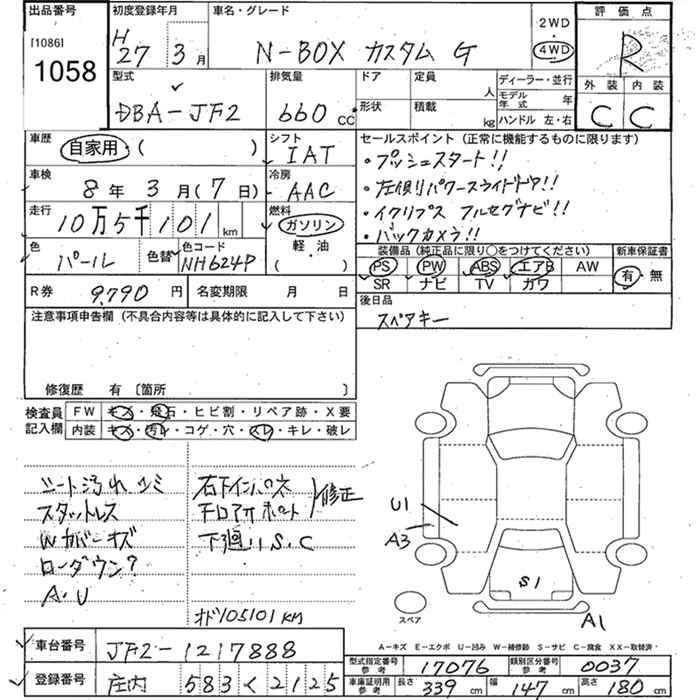 出品番号
[1086]
1058
初度登録年月
H 27 3月
車名・グレード
N-BOX カスタム G
2WD
4WD
評価点
R
外装 内装
C C
型式
DBA-JF2
排気量
660 CC
ドア
形状
定員 人
積載 kg
ディーラー・並行
モデル年式 年
ハンドル 左・右
車歴
自家用 ( )
シフト
IAT
車検
8年 3月 (7日)
冷房
AAC
走行
10万5千101 km
燃料
ガソリン
軽・油
( )
色
パール
色替
色コード
NH624P
セールスポイント (正常に機能するものに限ります)
・プッシュスタート!!
・左側リパワースライドドア!!
・イクリプス フルセグナビ!!
・バックカメラ!!
装備品 (純正品に限り○をつけてください)
PS PW ABS エアB AW
SR ナビ TV カワ
新車保証書
有・無
R券 9,790 円
名変期限 月 日
後日品
スペアキー
注意事項申告欄 (不具合内容等は具体的に記入して下さい)
修復歴 有 〔箇所 〕
検査員記入欄
FW キズ・飛石・ヒビ割・リペア跡・X要
内装 キズ・汚れ・コゲ・穴・スレ・キレ・破レ
シート汚れ シミ
スタットレス
Wカバーキズ
ローダウン?
A.U
右下インパネ
フロアサポート
修正
下廻りS.C
オド105101KM
U1
A3
S1
A1
スペア
A-キズ E-エクボ U-凹み W-補修跡 S-サビ C-腐食 XX-取替済
車台番号 JF2-1217888
登録番号 庄内 583 く 2125
型式指定番号 参考 17076
類別区分番号 参考 0037
車庫証明用 参考 長さ 339 cm 幅 147 cm 高さ 180 cm